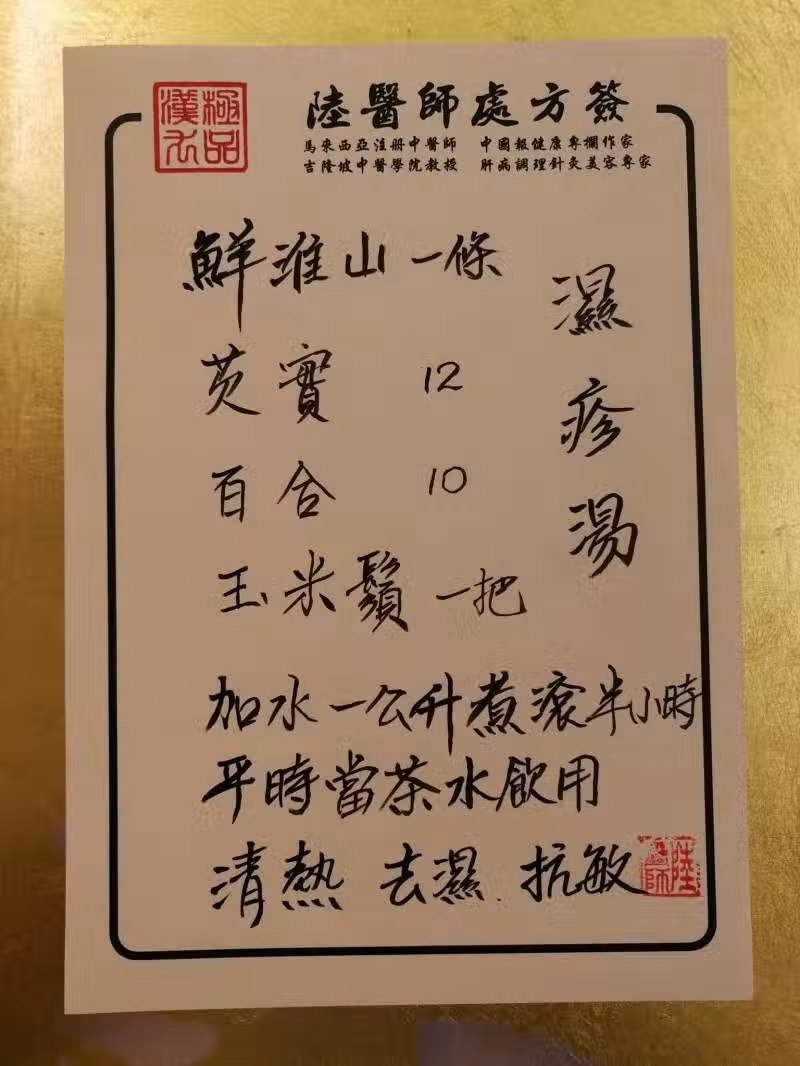 極品
漢方
陸醫師處方簽
馬來西亞注册中醫師 中國報健康專欄作家
吉隆坡中醫學院教授 肝病調理針灸美容專家
濕疹湯
鮮淮山 一條
芡實 12
百合 10
玉米鬚 一把
加水一公升煮滾半小時
平時當茶水飲用
清熱 去濕 抗敏
陸醫師